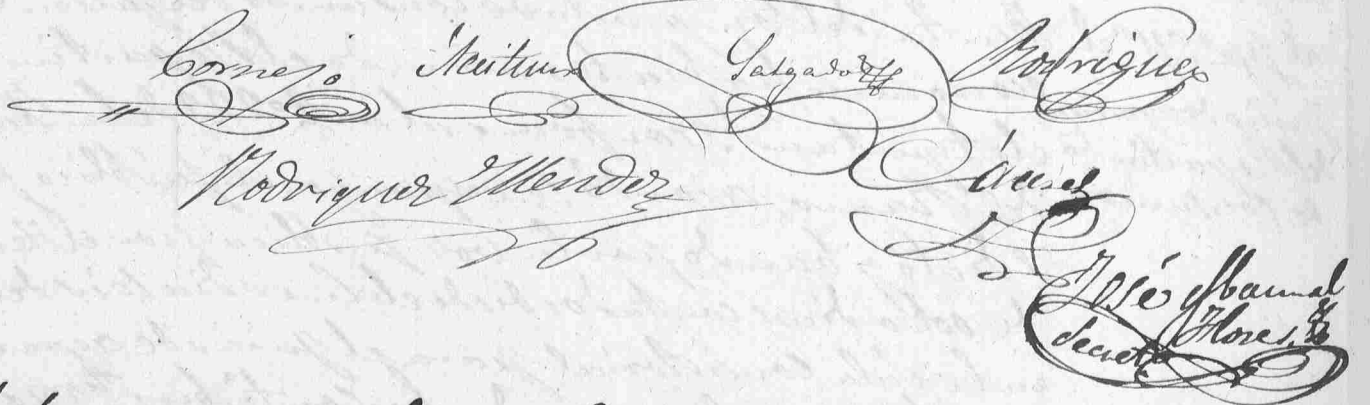 Cornejo Salgado Rodriguez
Rodriguez Mendez
José Manual
Flores
Secret